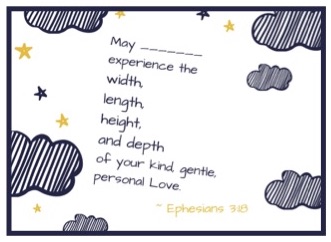 May _______
experience the
width,
length,
height,
and depth
of your kind, gentle,
personal Love.
~ Ephesians 3:18